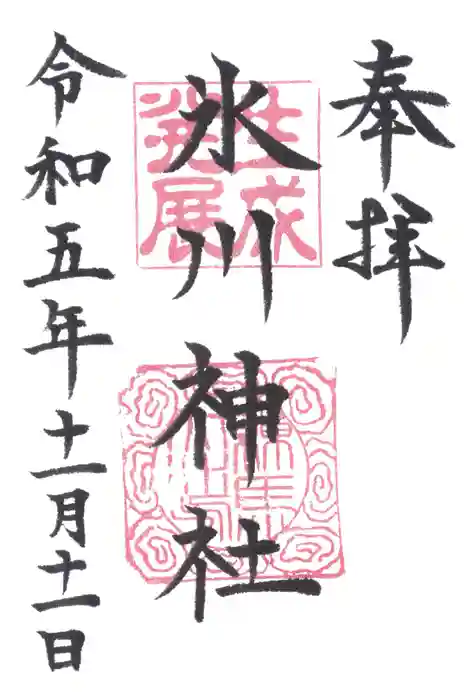 奉拝
氷川神社
生成発展
令和五年十一月十一日